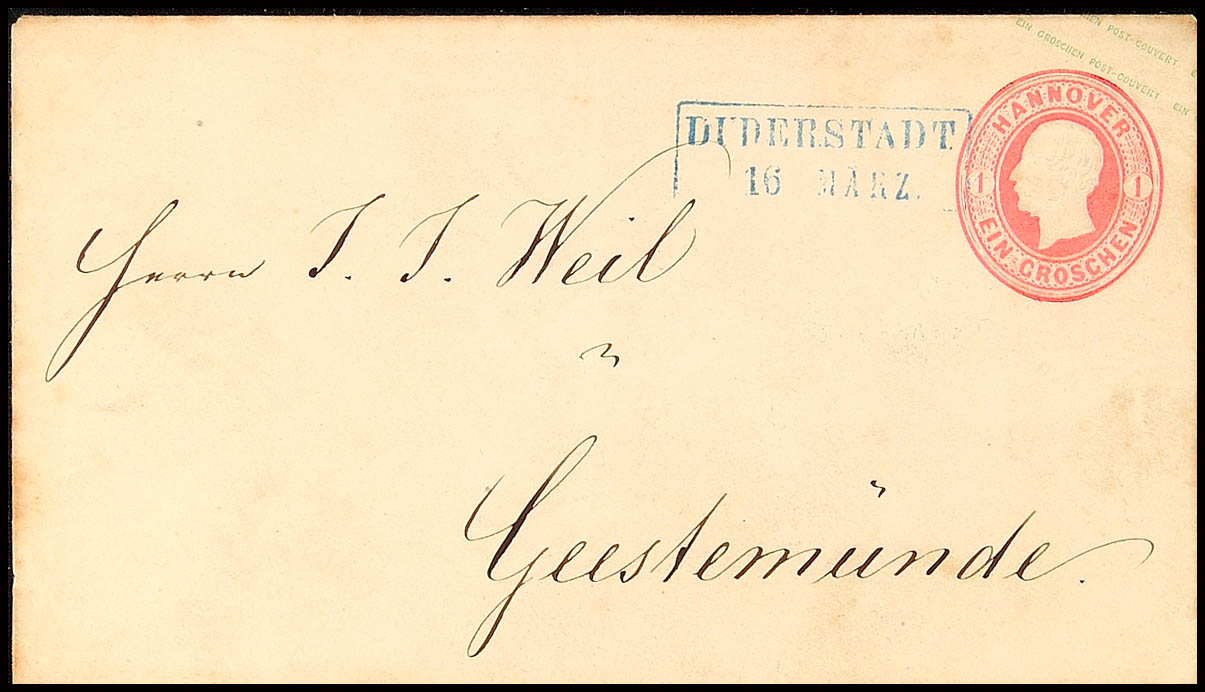 CHEN POST-COUVERT E
EIN GROSCHEN POST-COUVERT EIN
HANNOVER
1 1
EIN GROSCHEN
DUDERSTADT
16 MÄRZ.
Herrn J. J. Weil
Geestemünde.